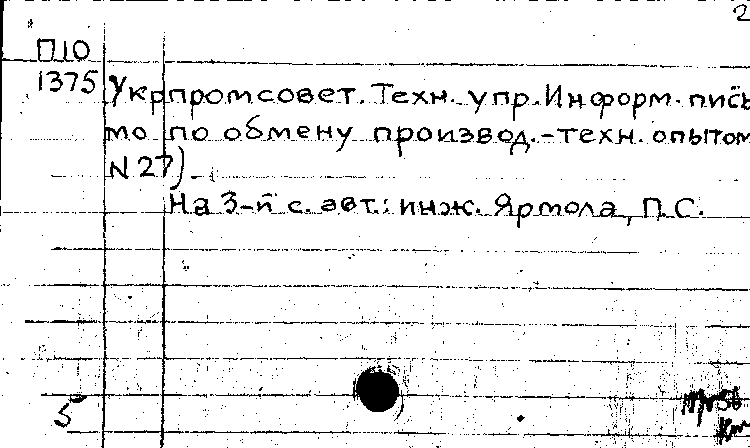 2
П10
1375 Укрпромсовет. Техн. упр. Информ. пись
мо по обмену производ.-техн. опытом
N 27).
На 3-й с. авт.: инж. Ярмола, П.С.
5